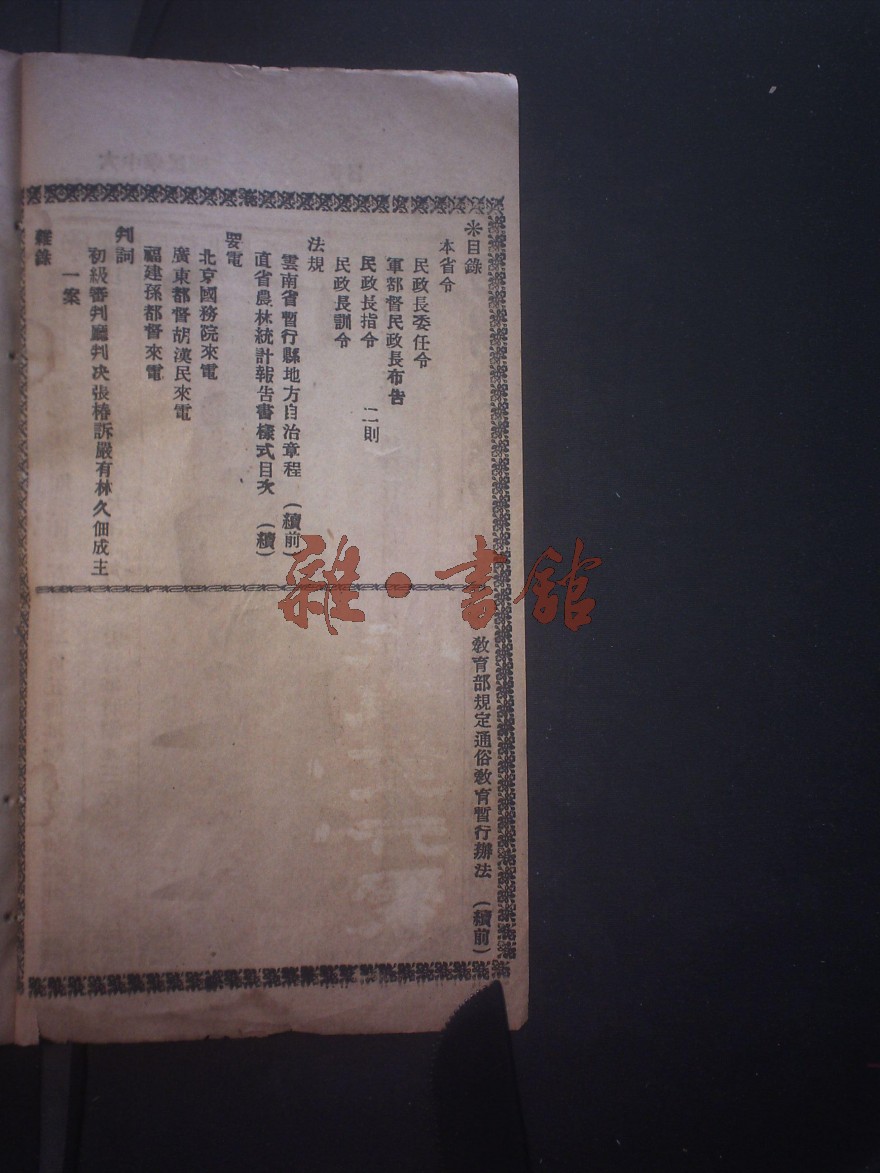 ※目錄
本省令
民政長委任令
軍部督民政長布告
民政長指令　二則
民政長訓令
法規
雲南省暫行縣地方自治章程　(續前)
直省農林統計報告書樣式目次　(續)
要電
北京國務院來電
廣東都督胡漢民來電
福建孫都督來電
判詞
初級審判廳判决張椿訴嚴有林久佃成主
一案
雜錄
教育部規定通俗教育暫行辦法　(續前)
雜·書館